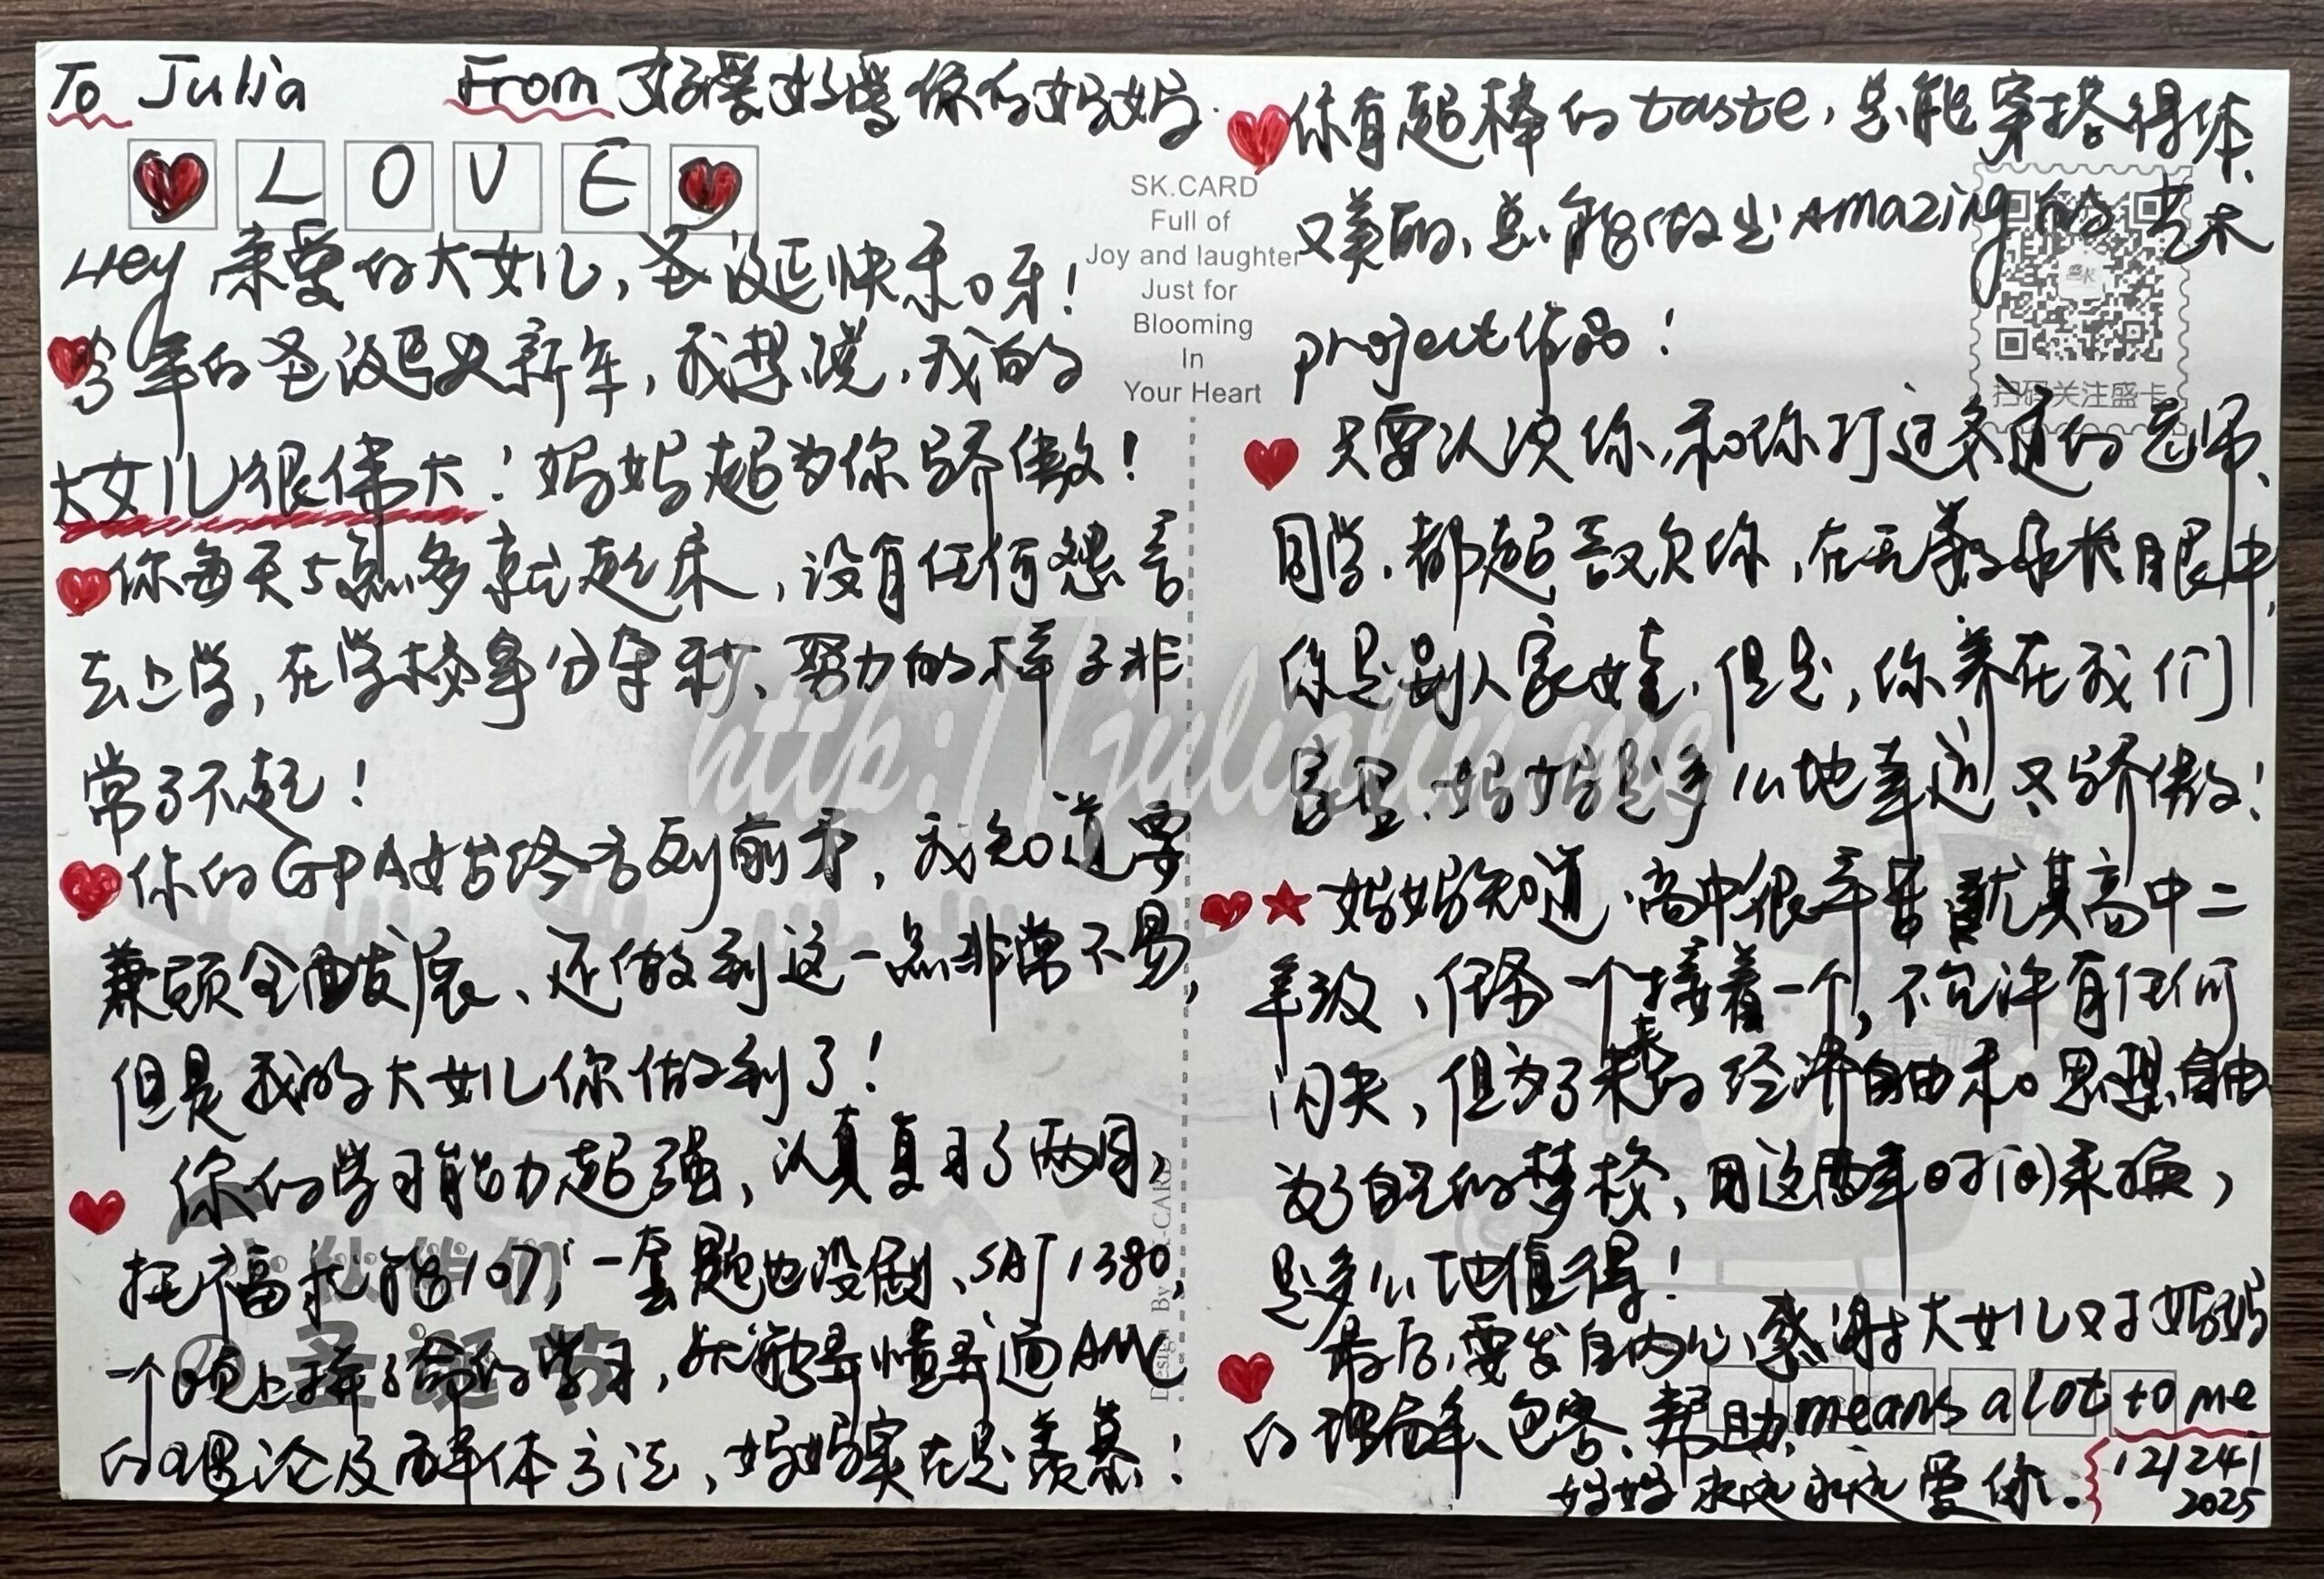 To Julia From 好爱好爱你的妈妈
LOVE
Hey 亲爱的大女儿,圣诞快乐呀!
今年的圣诞及新年,我想说,我的
大女儿很伟大!妈妈超为你骄傲!
你每天5点多就起床,没有任何怨言
去上学,在学校争分夺秒、努力的样子非
常了不起!
你的GPA始终名列前茅,我知道要
兼顾全面发展、还做到这一点非常不易,
但是我的大女儿你做到了!
你的学习能力超强,认真复习了两周,
托福就能107,一套题也没做、SAT 1380,
一个晚上拼了命的学习,就能弄懂弄通AMC
的理论及解体方法,妈妈实在是羡慕!
SK.CARD
Full of
Joy and laughter
Just for
Blooming
In
Your Heart
Design By SK-CARD
伙伴们
圣诞节
你有超棒的taste,总能穿搭得体、
又美丽、总能做出Amazing的艺术
project作品!
扫码关注盛卡
只要认识你,和你打过交道的老师、
同学,都超喜欢你,在无数家长眼中,
你是别人家娃,但是,你养在我们
家里、妈妈是多么地幸运又骄傲!
妈妈知道,高中很辛苦,尤其高中二
年级,任务一个接着一个,不允许有任何
闪失,但为了未来的经济自由和思想自由
为了自己的梦校,用这两年时间来换,
是多么地值得!
最后,要发自内心,感谢大女儿对于妈妈
的理解、包容、帮助,means a lot to me
妈妈永远永远爱你。
12/24/
2025
http://julialin.me